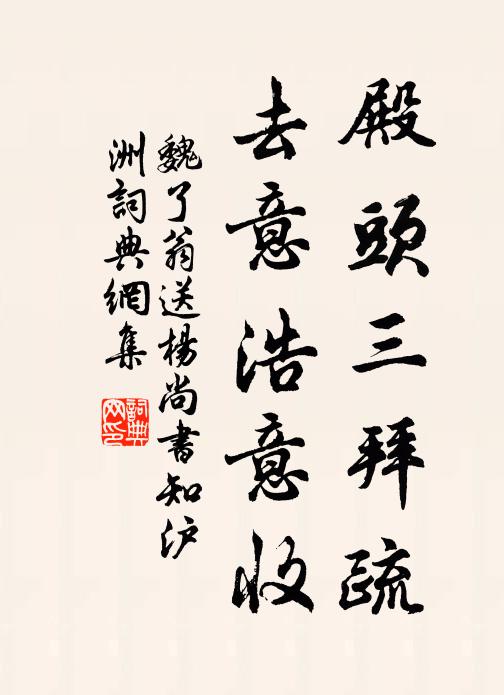 殿頭三拜疏
去意浩意收
魏了翁送楊尚書知沪
洲詞典網集
詞典
网印